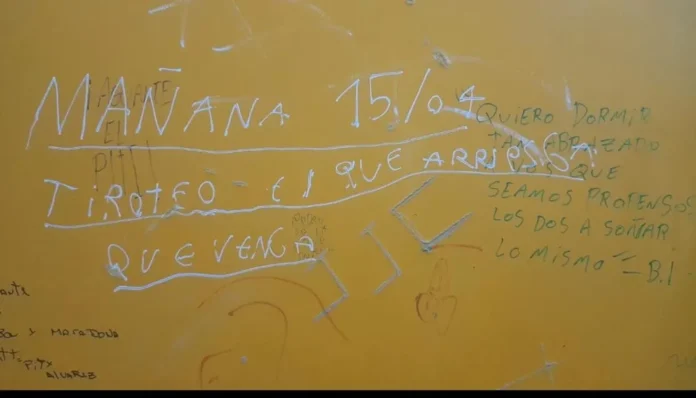 MAÑANA 15/04
TIROTEO - El QUE ARRIESGA
QUE VENGA
AGUANTE
EL
QUIERO DORMIR
TAN ABRAZADO
A VOS QUE
SEAMOS PROTENSOS
LOS DOS A SOÑAR
LO MISMO - B.I
Y MACADONA
PITY
ALVAREZ